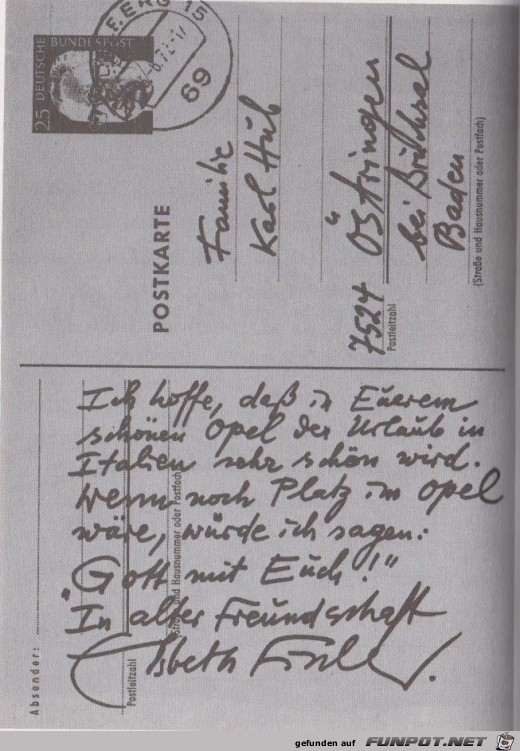 DEUTSCHE BUNDESPOST
25
15
69
POSTKARTE
Familie
Karl Hub
7524 Östringen
bei Bruchsal
Baden
Postleitzahl
(Straße und Hausnummer oder Postfach)
Ich hoffe, daß in Euerem
schönen Opel der Urlaub in
Italien sehr schön wird.
Wenn noch Platz im Opel
wäre, würde ich sagen:
„Gott mit Euch!"
In alter Freundschaft
Elsbeth
Absender:
Postleitzahl
(Straße und Hausnummer oder Postfach)
gefunden auf FUNPOT.NET